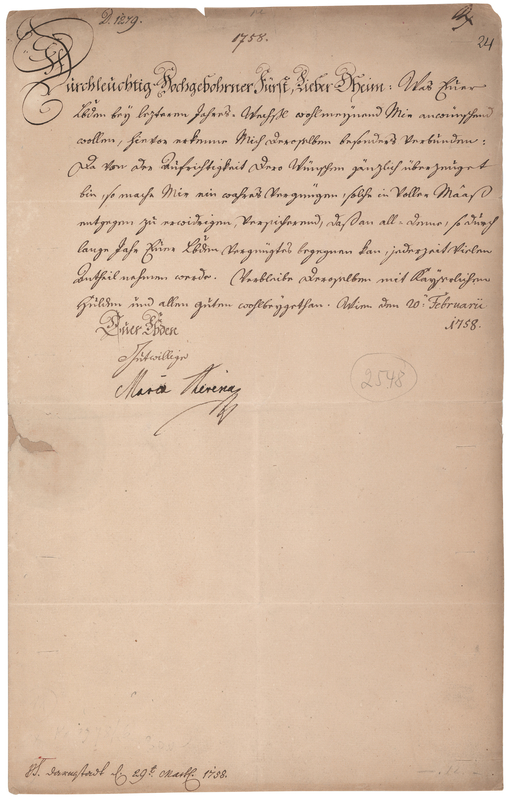 D. 1279.
1758.
24
Durchleüchtig-Hochgebohrner Fürst, Lieber Oheim: Was Euer
Lbden bey lezteren Jahres-Wechsl wohlmeynend Mir anwünschen
wollen, hievor erkenne Mich Deroselben besonders verbunden:
Da von der Aufrichtigkeit Dero Wünschen gänzlich überzeuget
bin, so mache Mir ein wahres Vergnügen, solche in vollen Maaß
entgegen zu erwidrigen, versicherend, daß an all-deme, so durch
lange Jahr Euer Lbden Vergnügtes begegnen kan, jederzeit vielen
Antheil nehmen werde. Verbleibe Deroselben mit Kayserlichen
Hulden und allen guten wohlbeygethan. Wien den 20ten Februarii
1758.
Euer Lbden
Gutwillige
Maria Theresia
2548
Darmstadt 29t. 1758.